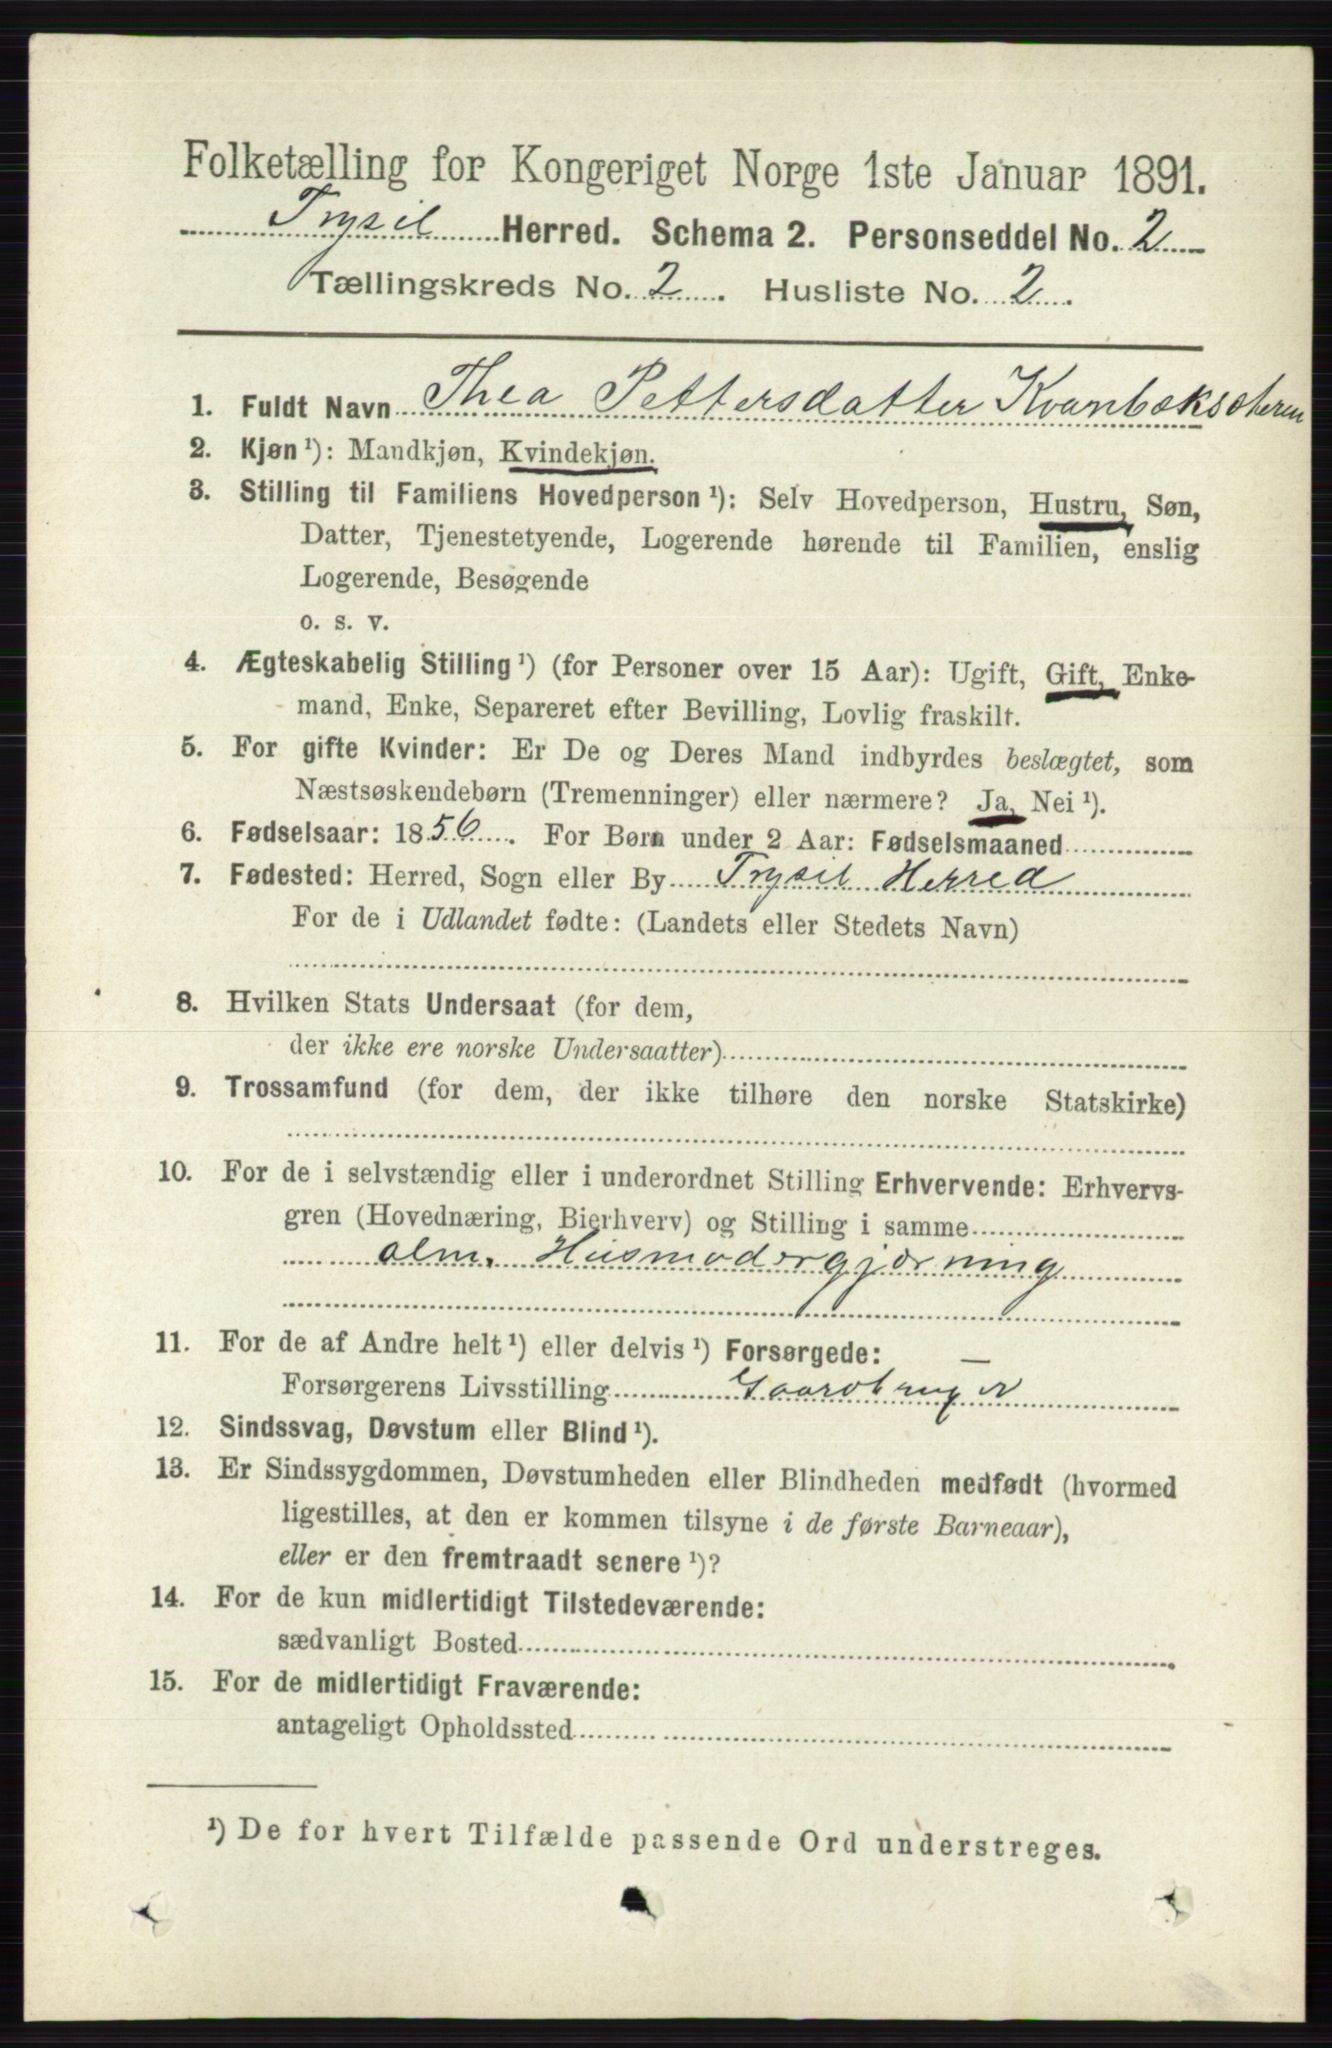 Folketælling for Kongeriget Norge 1ste Januar 1891.
Trysil Herred. Schema 2. Personseddel No. 2
Tællingskreds No. 2. Husliste No. 2.
1. Fuldt Navn Thea Pettersdatter
2. Kjøn ¹): Mandkjøn, Kvindekjøn.
3. Stilling til Familiens Hovedperson ¹): Selv Hovedperson, Hustru, Søn,
Datter, Tjenestetyende, Logerende hørende til Familien, enslig
Logerende, Besøgende
o. s. v.
4. Ægteskabelig Stilling ¹) (for Personer over 15 Aar): Ugift, Gift, Enke-
mand, Enke, Separeret efter Bevilling, Lovlig fraskilt.
5. For gifte Kvinder: Er De og Deres Mand indbyrdes beslægtet, som
Næstsøskendebørn (Tremenninger) eller nærmere? Ja, Nei ¹).
6. Fødselsaar: 1856. For Børn under 2 Aar: Fødselsmaaned
7. Fødested: Herred, Sogn eller By Trysil Herred
For de i Udlandet fødte: (Landets eller Stedets Navn)
8. Hvilken Stats Undersaat (for dem,
der ikke ere norske Undersaatter)
9. Trossamfund (for dem, der ikke tilhøre den norske Statskirke)
10. For de i selvstændig eller i underordnet Stilling Erhvervende: Erhvervs-
gren (Hovednæring, Bierhverv) og Stilling i samme
alm. Husmodergjørning
11. For de af Andre helt ¹) eller delvis ¹) Forsørgede:
Forsørgerens Livsstilling Gaardbruger
12. Sindssvag, Døvstum eller Blind ¹).
13. Er Sindssygdommen, Døvstumheden eller Blindheden medfødt (hvormed
ligestilles, at den er kommen tilsyne i de første Barneaar),
eller er den fremtraadt senere ¹)?
14. For de kun midlertidigt Tilstedeværende:
sædvanligt Bosted
15. For de midlertidigt Fraværende:
antageligt Opholdssted
¹) De for hvert Tilfælde passende Ord understreges.